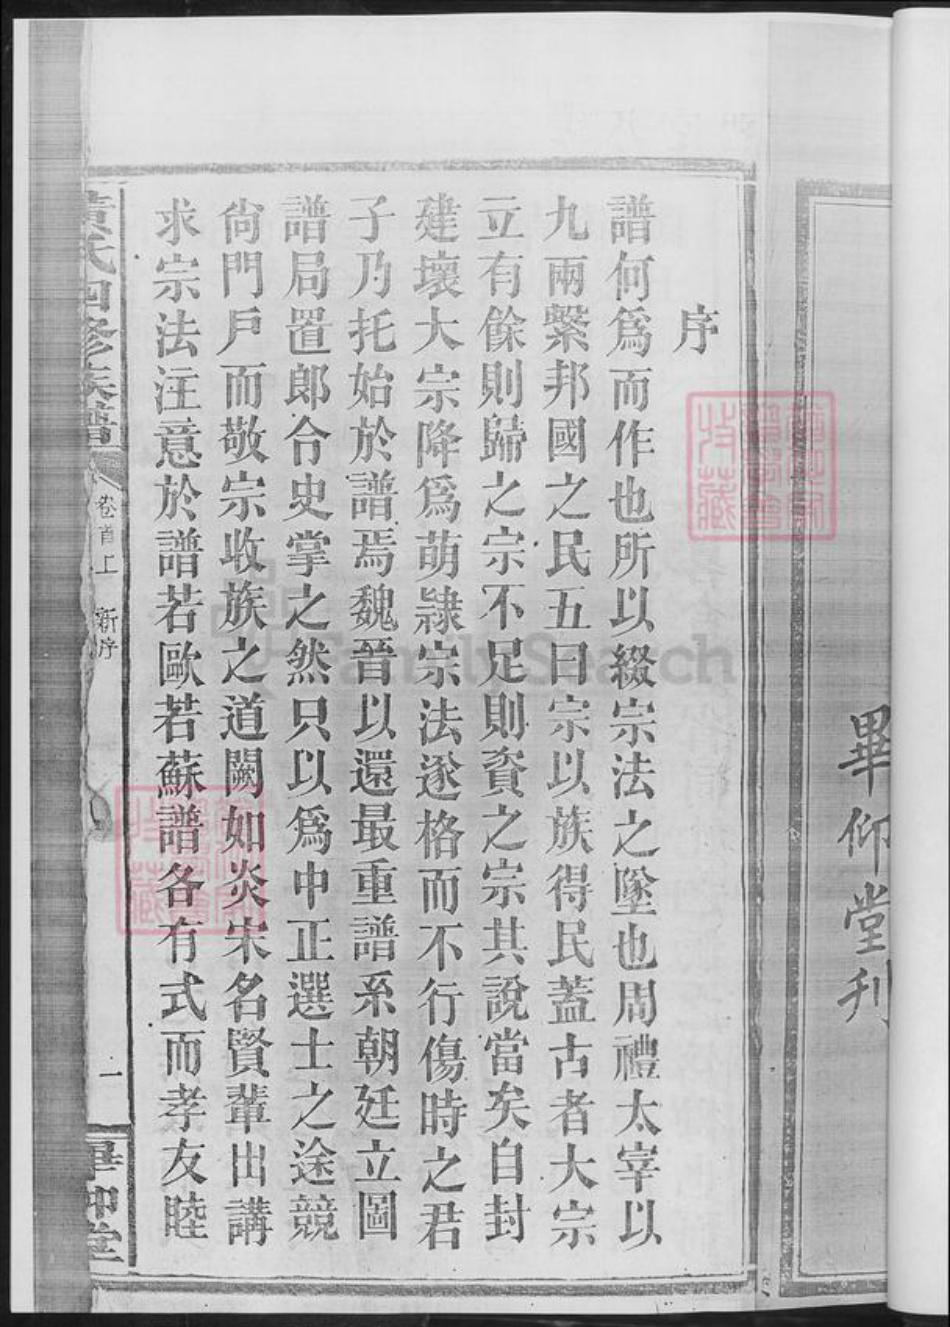 畢仰堂刋
序
譜何爲而作也所以綴宗法之墜也周禮太宰以
九兩繫邦國之民五曰宗以族得民蓋古者大宗
立有餘則歸之宗不足則資之宗其說當矣自封
建壞大宗降爲萌隸宗法遂格而不行傷時之君
子乃托始於譜焉魏晉以還最重譜系朝廷立圖
譜局置郎令史掌之然只以爲中正選士之途競
尙門戶而敬宗收族之道闕如炎宋名賢輩出講
求宗法注意於譜若歐若蘇譜各有式而孝友睦
黃氏四修族譜 卷首上 新序 一 畢仰堂
FamilySearch